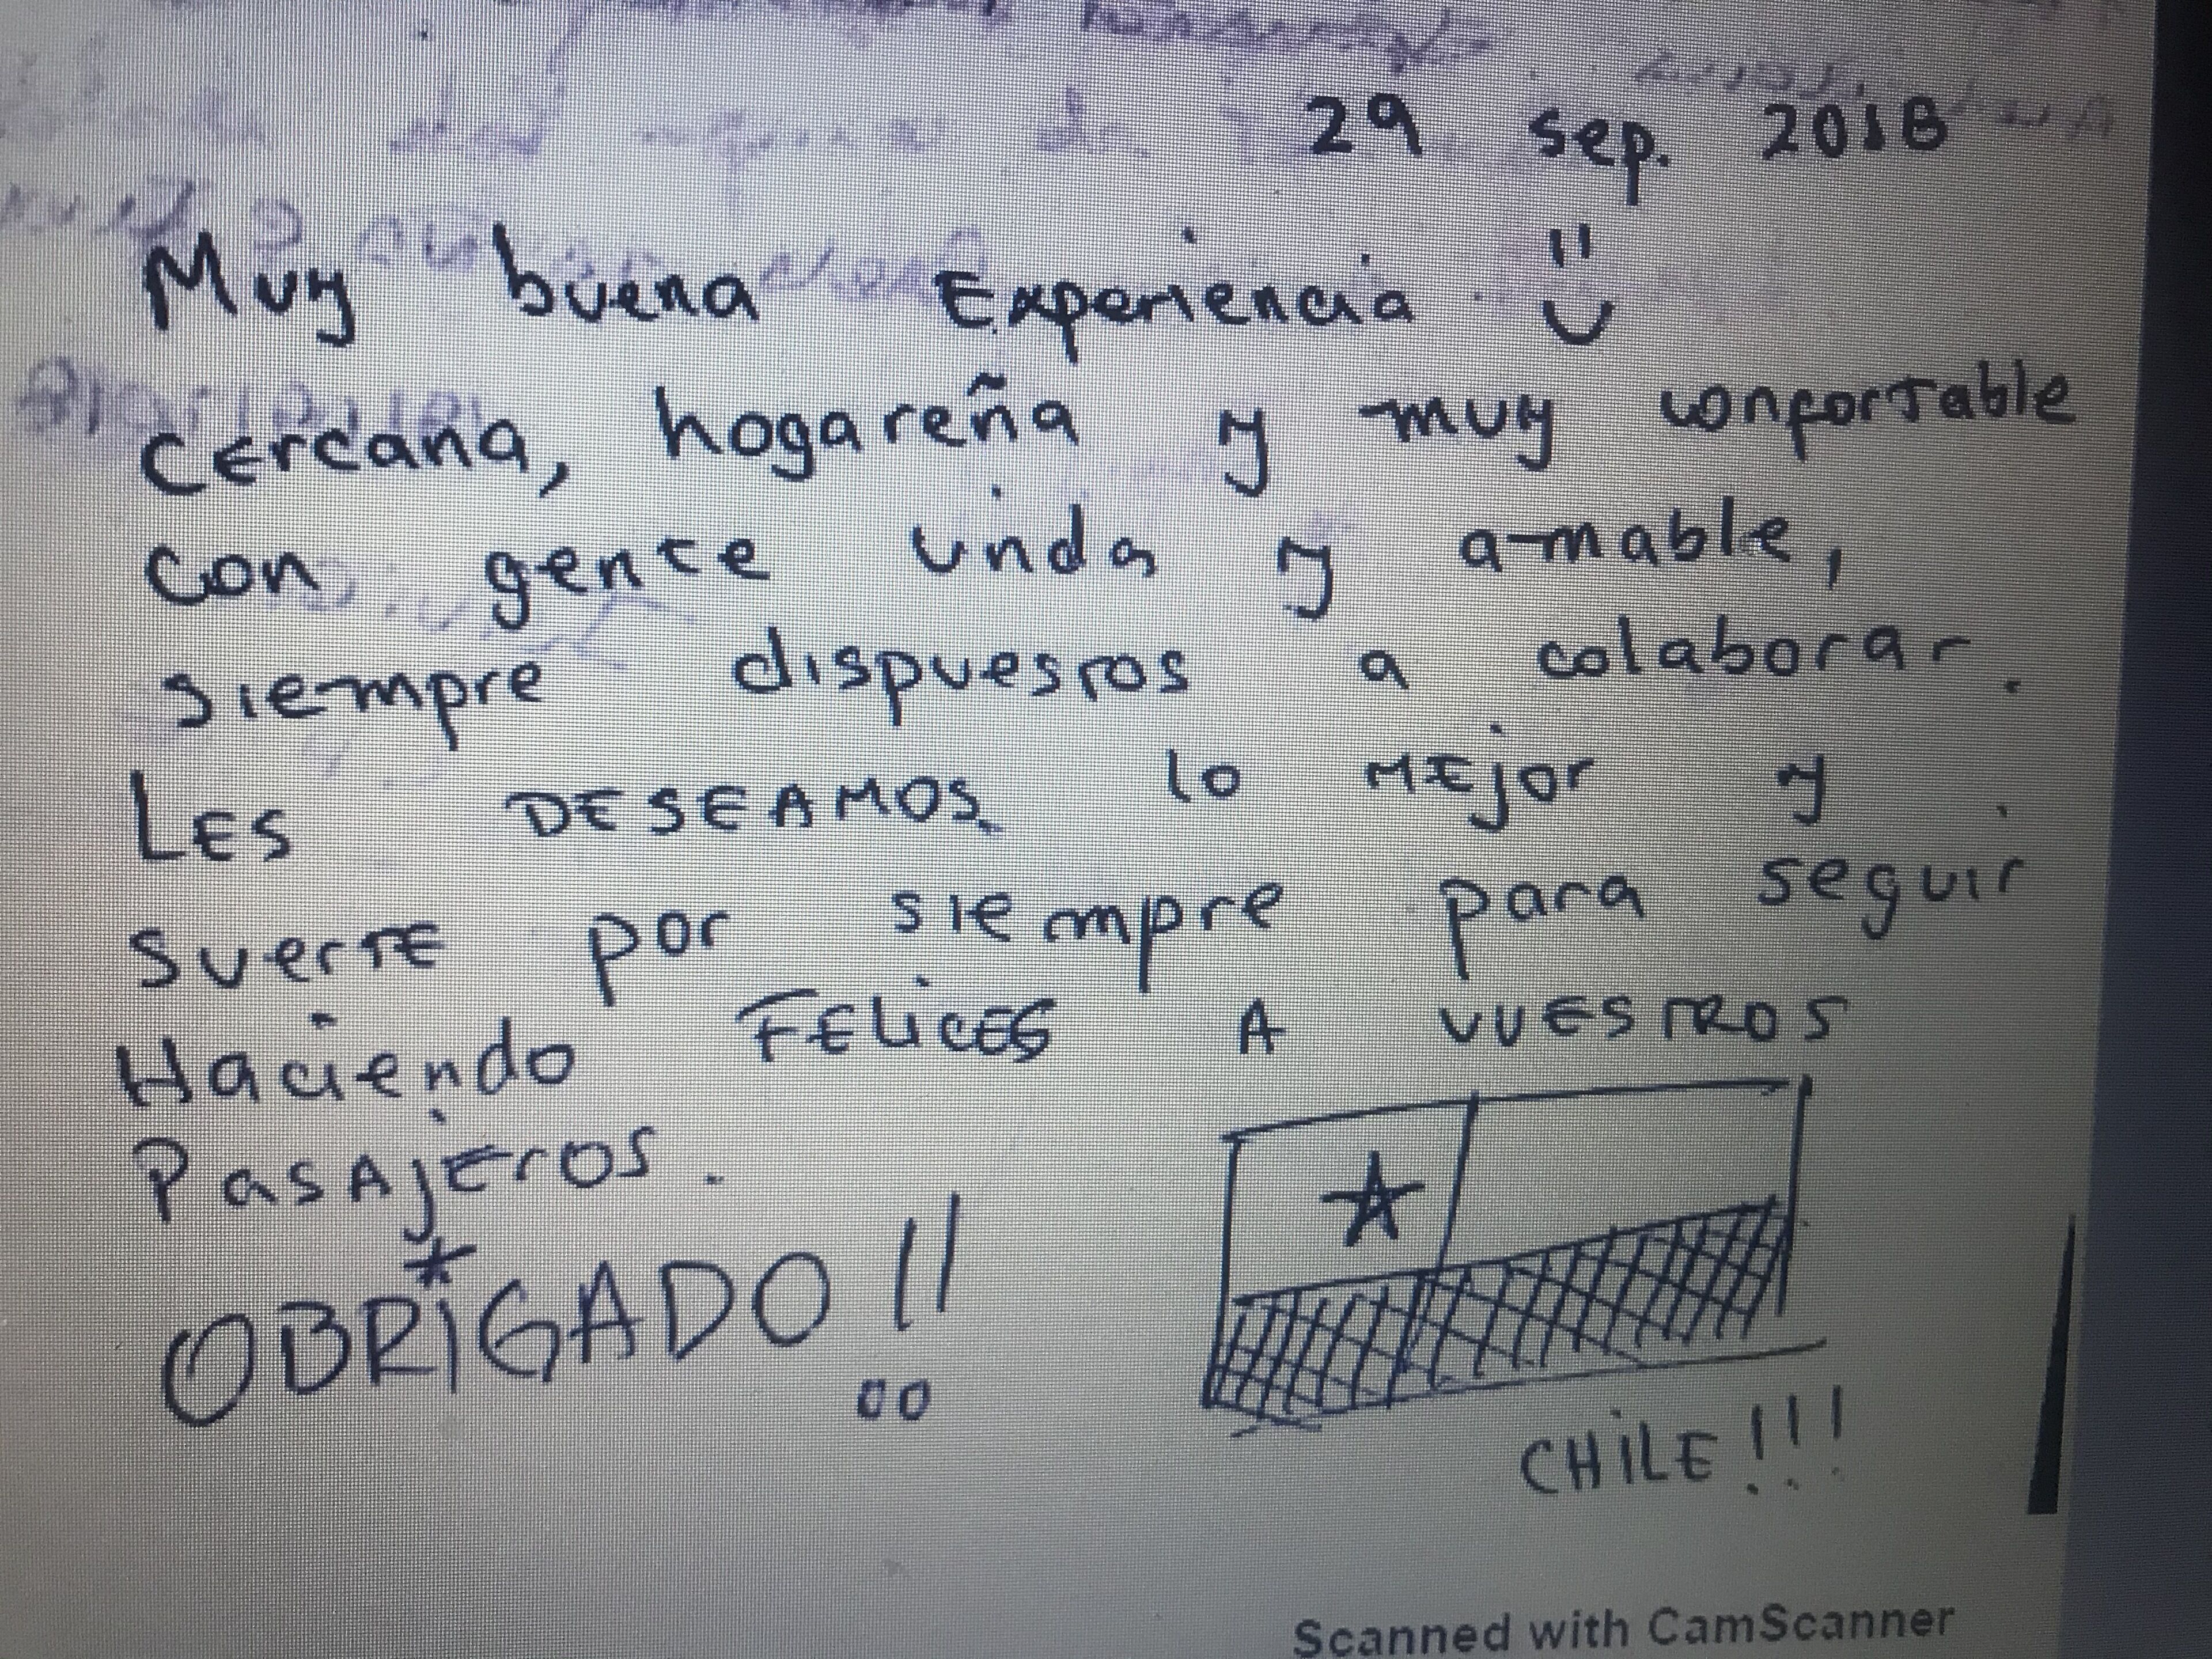 29 sep. 2018
Muy buena Experiencia
Cercana, hogareña y muy confortable
con gente linda y amable,
siempre dispuestos a colaborar.
LES DESEAMOS lo MEjor y
suerTE por siempre para seguir
Haciendo FELiCES A VUESTROS
PasAjEros.
OBRIGADO!!
CHiLE!!!
Scanned with CamScanner